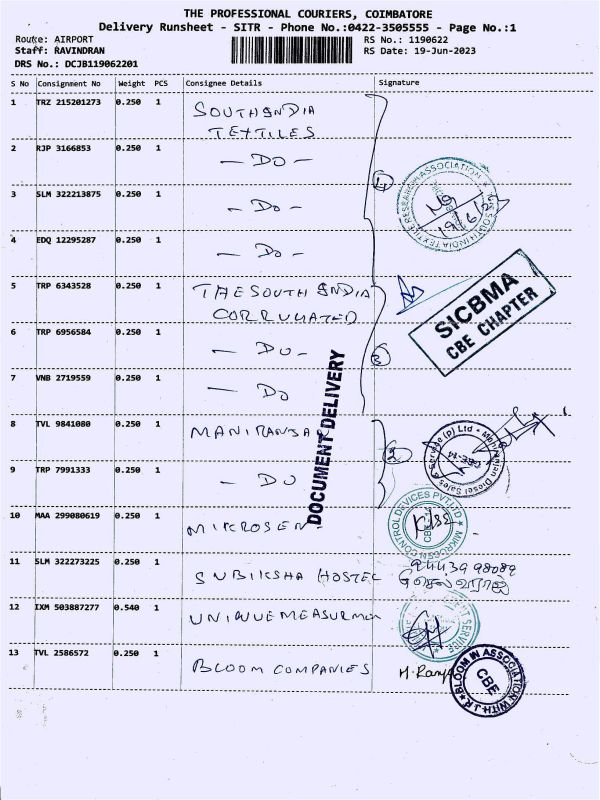 THE PROFESSIONAL COURIERS, COIMBATORE
Delivery Runsheet - SITR - Phone No.:0422-3505555 - Page No.:1
Route: AIRPORT
RS No.: 1190622
Staff: RAVINDRAN
RS Date: 19-Jun-2023
DRS No.: DCJB119062201
S No Consignment No Weight PCS Consignee Details Signature
1 TRZ 215201273 0.250 1 SOUTHINDIA
TEXTILES
2 RJP 3166853 0.250 1 - DO -
3 SLM 322213875 0.250 1 - DO -
4 EDQ 12295287 0.250 1 - DO -
5 TRP 6343528 0.250 1 THE SOUTH INDIA
CORRUGATED
6 TRP 6956584 0.250 1 - DO -
7 VNB 2719559 0.250 1 - DO
8 TVL 9841080 0.250 1
9 TRP 7991333 0.250 1 - DO
10 MAA 299080619 0.250 1 MIKROSEN
11 SLM 322273225 0.250 1 SUBIKSHA HOSTEL
செல்வராஜ்
12 IXM 503887277 0.540 1
13 TVL 2586572 0.250 1 BLOOM COMPANIES
4
3
2
SOUTH INDIA TEXTILE RESEARCH ASSOCIATION
SICBMA
CBE CHAPTER
DOCUMENT DELIVERY
Diesel Sales & Service (p) Ltd
CBE-14
CONTROL DEVICES PVT LTD
CBE
SERVICE
BLOOM IN ASSOCIATION WITH J.R
CBE